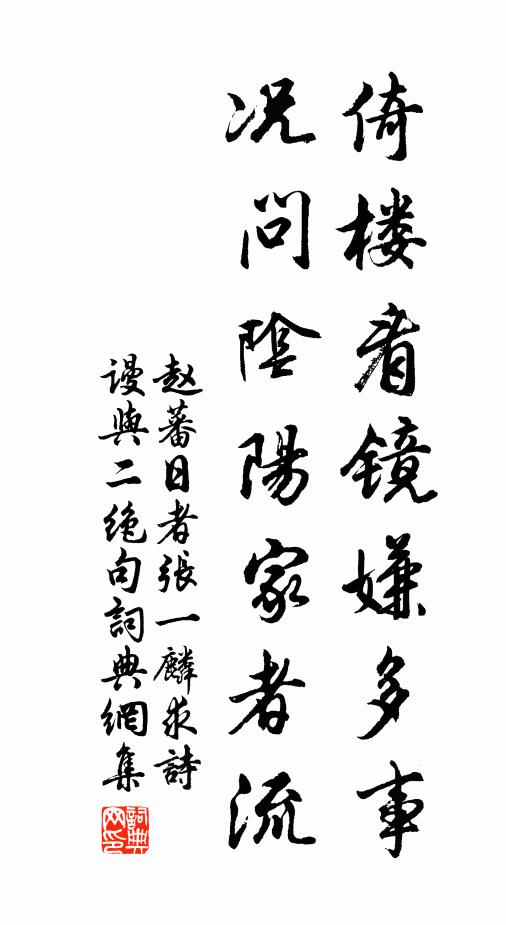 倚楼看镜嫌多事
况问陰陽家者流
赵蕃日者張一麟求詩
謾與二绝句詞典網集
詞典网印